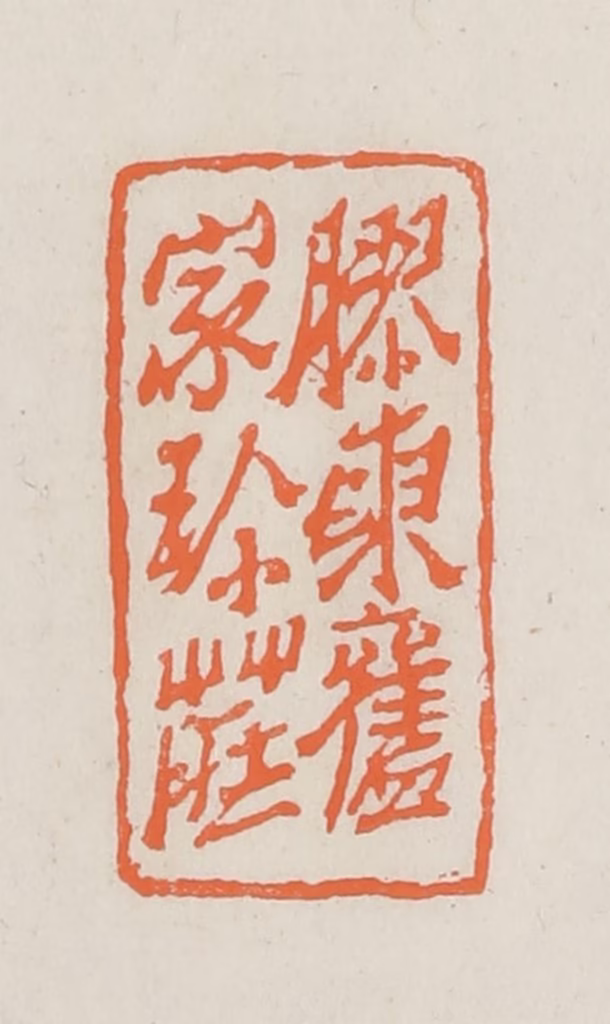 膠東舊
家珎藏